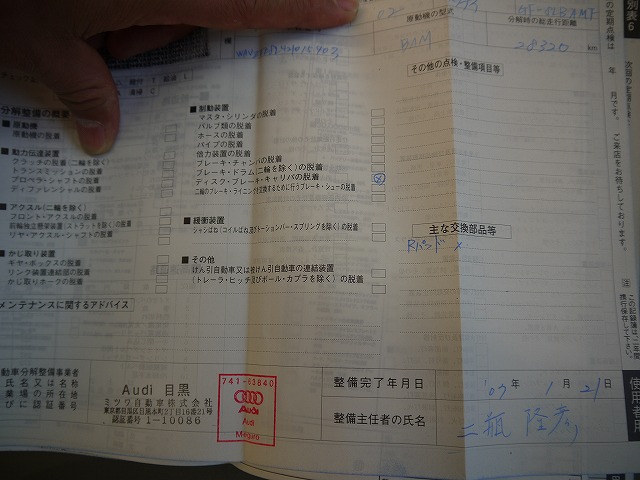 原動機の型式
分解時の総走行距離
BAM
28320 km
その他の点検・整備項目等
分解整備の概要
原動機
原動機の脱着
動力伝達装置
クラッチの脱着(二輪を除く)
トランスミッションの脱着
プロペラシャフトの脱着
ディファレンシャルの脱着
アクスル(二輪を除く)
フロント・アクスルの脱着
前輪独立懸架装置(ストラットを除く)の脱着
リヤ・アクスル・シャフトの脱着
かじ取り装置
ギヤ・ボックスの脱着
リンク装置連結部の脱着
かじ取りホークの脱着
■制動装置
マスタ・シリンダの脱着
バルブ類の脱着
ホースの脱着
パイプの脱着
倍力装置の脱着
ブレーキ・チャンバの脱着
ブレーキ・ドラム(二輪を除く)の脱着
ディスク・ブレーキ・キャリパの脱着
二輪のブレーキ・ライニングを交換するために行うブレーキ・シューの脱着
■緩衝装置
シャシばね(コイルばね及びトーションバー・スプリングを除く)の脱着
■その他
けん引自動車又は被けん引自動車の連結装置
(トレーラ・ヒッチ及びボール・カプラを除く)の脱着
主な交換部品等
メンテナンスに関するアドバイス
動車分解整備事業者
氏名又は名称
業場の所在地
びに認証番号
Audi 目黒
ミツワ自動車株式会社
東京都目黒区目黒本町2丁目16番21号
認証番号 1-10086
741-63840
Audi
Audi
Meguro
整備完了年月日
'09 年 1 月 21 日
整備主任者の氏名
二瓶 隆彦
別表6
の定期点検は 年 月です。
次回の定期点検
ご来店をお待ちしております。
注
この記録簿は二年間
携行保存して下さい。
使用者用